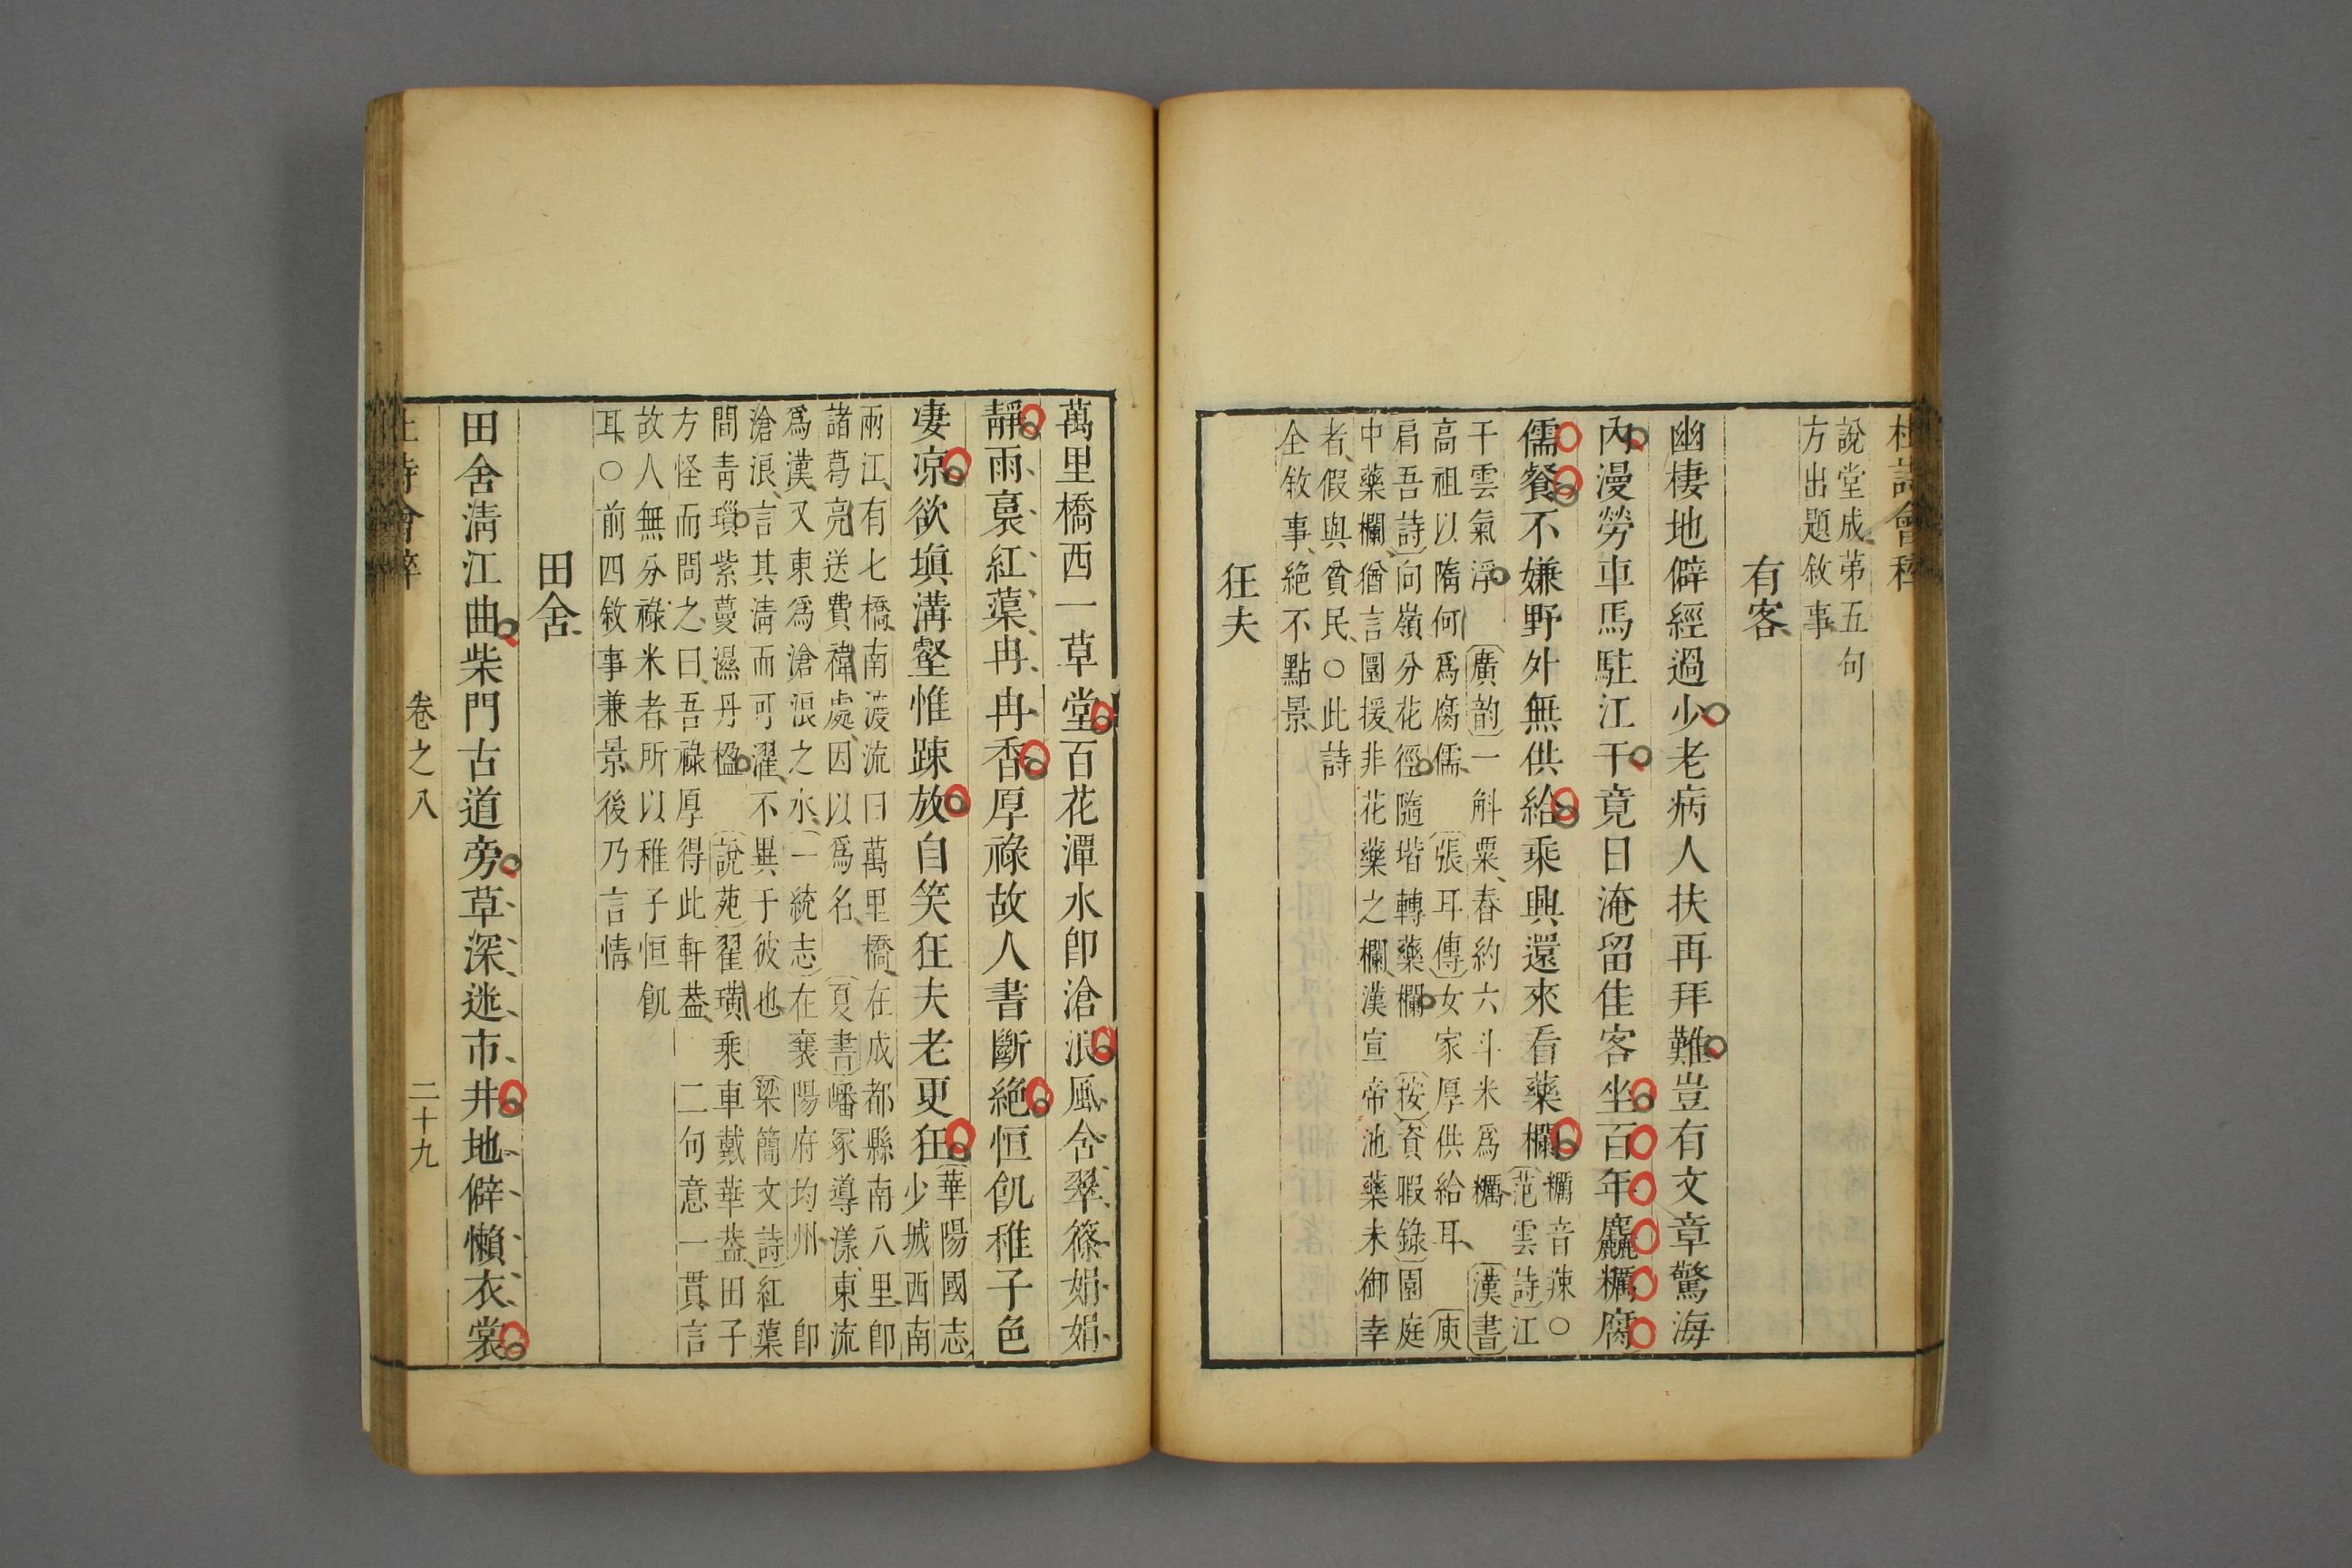 杜詩會稡
說堂成第五句
方出題敘事
有客
幽棲地僻經過少老病人扶再拜難豈有文章驚海
內漫勞車馬駐江干竟日淹留佳客坐百年麤糲腐
儒餐不嫌野外無供給乘興還來看藥欄
糲音辣○
范雲詩江
干雲氣浮 廣韵一斛粟舂約六斗米爲糲 漢書
高祖以隋何爲腐儒 張耳傳女家厚供給耳 庾
肩吾詩向嶺分花徑隨堦轉藥欄 按資暇錄園庭
中藥欄猶言園援非花藥之欄漢宣帝池藥未御幸
者假與貧民○此詩
全敘事絕不點景
狂夫
萬里橋西一草堂百花潭水卽滄浪風含翠篠娟娟
靜雨裛紅蕖冉冉香厚祿故人書斷絕恒飢稚子色
凄凉欲塡溝壑惟踈放自笑狂夫老更狂
華陽國志
少城西南
兩江有七橋南渡流曰萬里橋在成都縣南八里卽
諸葛亮送費禕處因以爲名 夏書嶓冢導漾東流
爲漢又東爲滄浪之水 一統志在襄陽府均州 卽
滄浪言其淸而可濯不異于彼也 梁簡文詩紅蕖
間靑瑣紫蔓濕丹楹 說苑翟璜乘車戴華葢田子
方怪而問之曰吾祿厚得此軒葢 二句意一貫言
故人無分祿米者所以稚子恒飢
耳○前四敘事兼景後乃言情
田舍
田舍淸江曲柴門古道旁草深迷市井地僻懶衣裳
杜詩會稡 卷之八 二十九